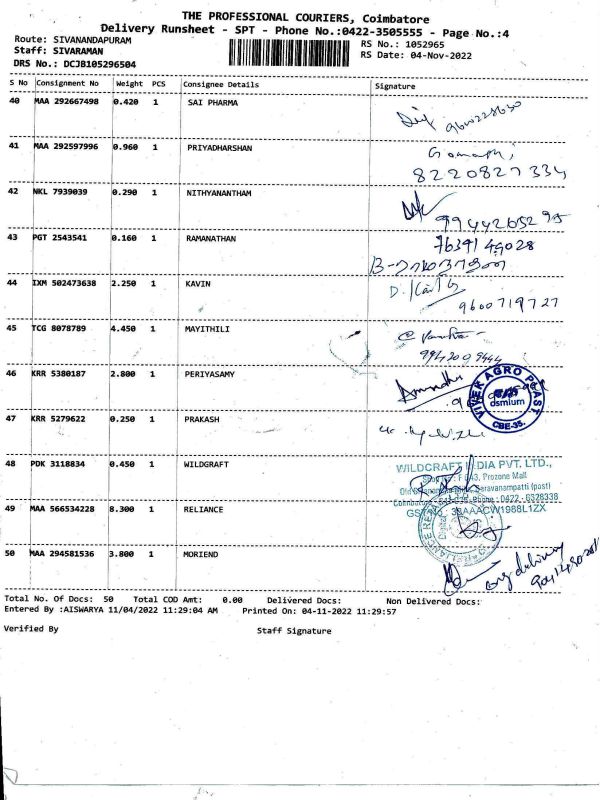 THE PROFESSIONAL COURIERS, Coimbatore
Delivery Runsheet - SPT - Phone No.:0422-3505555 - Page No.:4
Route: SIVANANDAPURAM
Staff: SIVARAMAN
DRS No.: DCJB105296504
RS No.: 1052965
RS Date: 04-Nov-2022
S No Consignment No Weight PCS Consignee Details Signature
40 MAA 292667498 0.420 1 SAI PHARMA
9600228630
41 MAA 292597996 0.960 1 PRIYADHARSHAN
8220827334
42 NKL 7939039 0.290 1 NITHYANANTHAM
9944265295
43 PGT 2543541 0.160 1 RAMANATHAN
7639149028
44 IXM 502473638 2.250 1 KAVIN
9600719727
45 TCG 8078789 4.450 1 MAYITHILI
9942009444
46 KRR 5380187 2.800 1 PERIYASAMY
VIVEK AGRO PLAST
osmium
CBE-35.
47 KRR 5279622 0.250 1 PRAKASH
48 PDK 3118834 0.450 1 WILDGRAFT
WILDCRAFT INDIA PVT. LTD.,
Prozone Mall
Saravanampatti (post)
Phone : 0422 - 6328338
GST No : 33AAACW1988L1ZX
49 MAA 566534228 8.300 1 RELIANCE
50 MAA 294581536 3.800 1 MORIEND
Total No. Of Docs: 50 Total COD Amt: 0.00 Delivered Docs: Non Delivered Docs:
Entered By :AISWARYA 11/04/2022 11:29:04 AM Printed On: 04-11-2022 11:29:57
Verified By Staff Signature